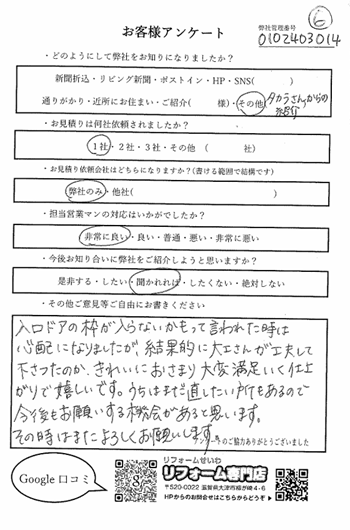 ⑥
お客様アンケート
弊社管理番号
0102403014
・どのようにして弊社をお知りになりましたか？
新聞折込・リビング新聞・ポストイン・HP・SNS(　　　)
通りがかり・近所にお住まい・ご紹介(　　　様)・その他(タカラさんからの紹介
・お見積りは何社依頼されましたか？
1社・2社・3社・その他　(　　　社)
・お見積り依頼会社はどちらになりますか？(書ける範囲で結構です)
弊社のみ・他社(　　　)
・担当営業マンの対応はいかがでしたか？
非常に良い・良い・普通・悪い・非常に悪い
・今後お知り合いに弊社をご紹介しようと思いますか？
是非する・したい・聞かれれば・したくない・絶対しない
・その他ご意見等ご自由にお書きください
入口ドアの枠が入らないかもって言われた時は
心配になりましたが、結果的に大工さんが工夫して
下さったのか、きれいにおさまり大変満足いく仕上
がりで嬉しいです。うちはまだ直したい所もあるので
今後もお願いする機会があると思います。
その時はまたよろしくお願いします。
アンケートのご協力ありがとうございました
Google 口コミ
リフォームせいわ
リフォーム専門店
〒520-0022 滋賀県大津市柳が崎4-6
HPからのお問合せはこちらからどうぞ